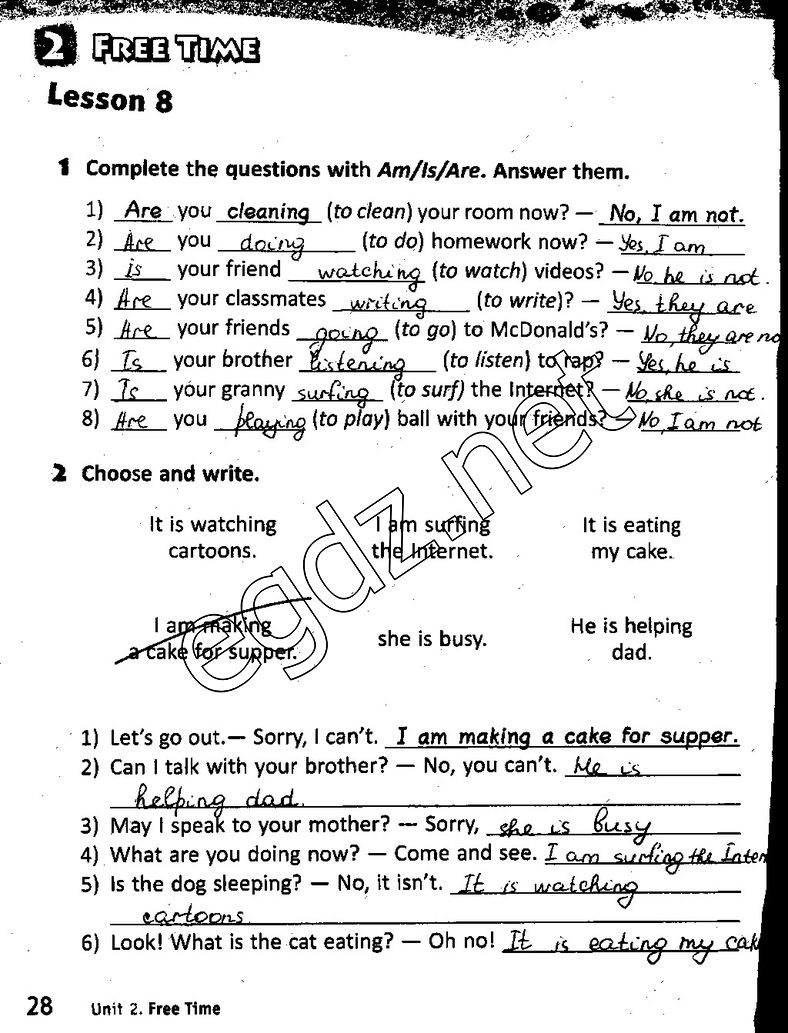 2 FREE TIME
Lesson 8
1 Complete the questions with Am/Is/Are. Answer them.
1) Are you cleaning (to clean) your room now? — No, I am not.
2) Are you doing (to do) homework now? — Yes, I am
3) is your friend watching (to watch) videos? — No he is not.
4) Are your classmates writing (to write)? — Yes, they are
5) Are your friends going (to go) to McDonald's? — No, they are no
6) Is your brother listening (to listen) to rap? — Yes, he is
7) Is your granny surfing (to surf) the Internet? — No, she is not.
8) Are you playing (to play) ball with your friends? — No, I am not
2 Choose and write.
It is watching I am surfing It is eating
cartoons. the Internet. my cake.
I am making he is helping
a cake for supper. she is busy. dad.
egdz.net
1) Let's go out.— Sorry, I can't. I am making a cake for supper.
2) Can I talk with your brother? — No, you can't. He is
helping dad.
3) May I speak to your mother? — Sorry, she is busy
4) What are you doing now? — Come and see. I am surfing the Inter
5) Is the dog sleeping? — No, it isn't. It is watching
cartoons
6) Look! What is the cat eating? — Oh no! It is eating my cak
28 Unit 2. Free Time